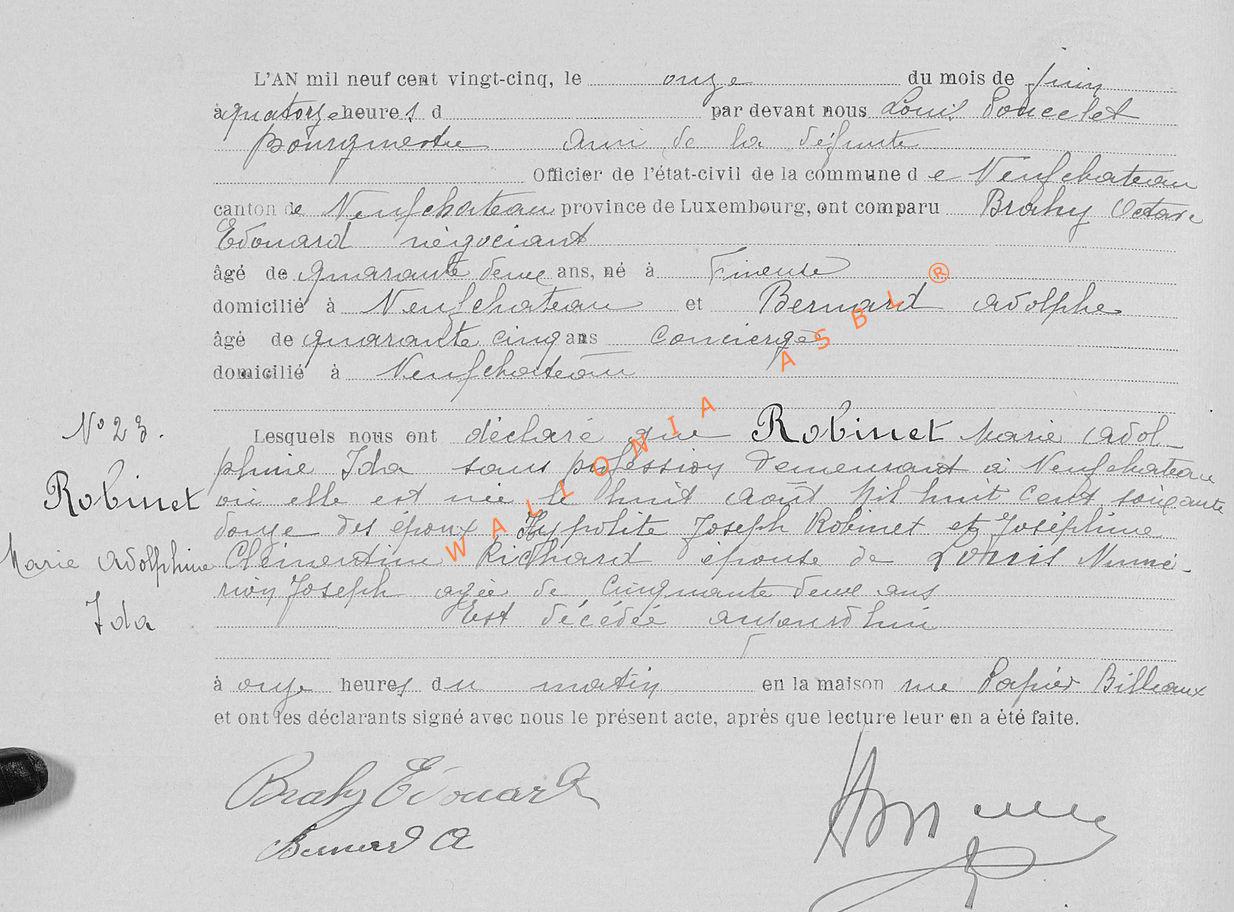 L'AN mil neuf cent vingt-cinq, le onze du mois de juin
à quatorze heures d par devant nous Louis Poncelet
bourgmestre ami de la défunte
Officier de l'état-civil de la commune de Neufchateau
canton de Neufchateau province de Luxembourg, ont comparu Brahy Octave
Edouard négociant
âgé de quarante deux ans, né à
domicilié à Neufchateau et Bernard Adolphe
âgé de quarante cinq ans concierge
domicilié à Neufchateau
N° 23.
Lesquels nous ont déclaré que Robinet Marie Adol-
phine Ida sans profession demeurant à Neufchateau
Robinet
où elle est née le huit août mil huit cent soixante
douze des époux Hyppolite Joseph Robinet et Joséphine
Marie Adolphine
Clémentine Richard épouse de Louis Numé-
rien Joseph agée de cinquante deux ans
Ida
Est décédée aujourd'hui
à onze heures du matin en la maison rue Papier Billeaux
et ont les déclarants signé avec nous le présent acte, après que lecture leur en a été faite.
Brahy Edouard
Bernard A
WALLONIA ASBL ®